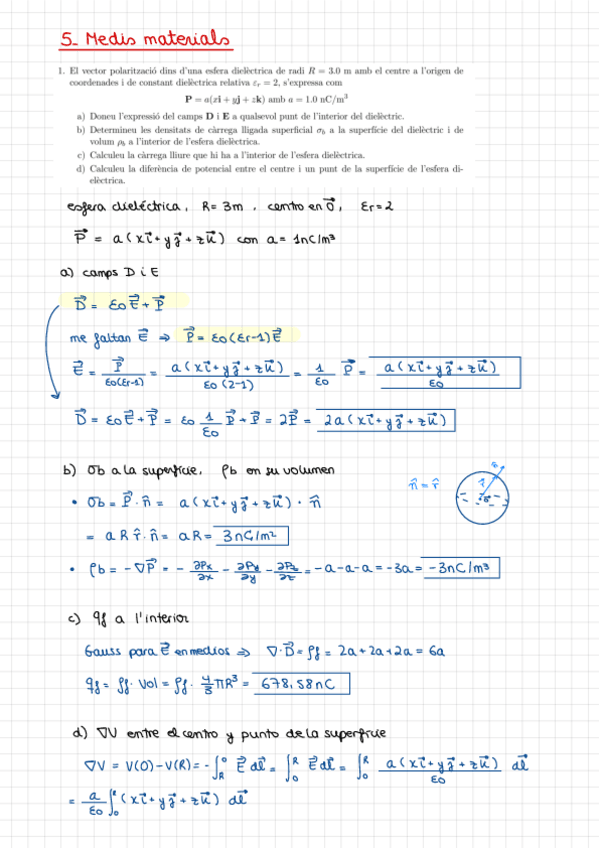 5_ Medis materials
1. El vector polarització dins d'una esfera dielèctrica de radi R = 3.0 m amb el centre a l'origen de
coordenades i de constant dielèctrica relativa εr = 2, s'expressa com
P = a(xi + yj + zk) amb a = 1.0 nC/m³
a) Doneu l'expressió del camps D i E a qualsevol punt de l'interior del dielèctric.
b) Determineu les densitats de càrrega lligada superficial σb a la superfície del dielèctric i de
volum ρb a l'interior de l'esfera dielèctrica.
c) Calculeu la càrrega lliure que hi ha a l'interior de l'esfera dielèctrica.
d) Calculeu la diferència de potencial entre el centre i un punt de la superfície de l'esfera di-
elèctrica.
esfera dieléctrica, R= 3m , centro en O⃗, εr=2
P⃗ = a(xi⃗+yj⃗+zk⃗) con a= 1nC/m³
a) camps D i E
D⃗ = ε0E⃗+P⃗
me faltan E⃗ ⇒ P⃗= ε0(εr-1)E⃗
E⃗ = P⃗/(ε0(εr-1)) = a(xi⃗+yj⃗+zk⃗)/(ε0(2-1)) = 1/ε0 P⃗ = a(xi⃗+yj⃗+zk⃗)/ε0
D⃗ = ε0E⃗+P⃗ = ε0 1/ε0 P⃗+P⃗ = 2P⃗ = 2a(xi⃗+yj⃗+zk⃗)
b) σb a la superfície, ρb en su volumen
n̂ = r̂
• σb = P⃗·n̂ = a(xi⃗+yj⃗+zk⃗) · n̂
= a R r̂·n̂ = aR = 3nC/m²
• ρb = -∇P⃗ = - ∂Px/∂x - ∂Py/∂y - ∂Pz/∂z = -a-a-a = -3a = -3nC/m³
c) qf a l'interior
Gauss para E⃗ en medios ⇒ ∇·D⃗ = ρf = 2a+2a+2a = 6a
qf = ρf· Vol = ρf· 4/3 πR³ = 678,58nC
d) ∇V entre el centro y punto de la superfície
∇V = V(0)-V(R) = -∫_R^0 E⃗ dl⃗ = ∫_0^R E⃗ dl⃗ = ∫_0^R a(xi⃗+yj⃗+zk⃗)/ε0 dl⃗
= a/ε0 ∫_0^R (xi⃗+yj⃗+zk⃗) dl⃗